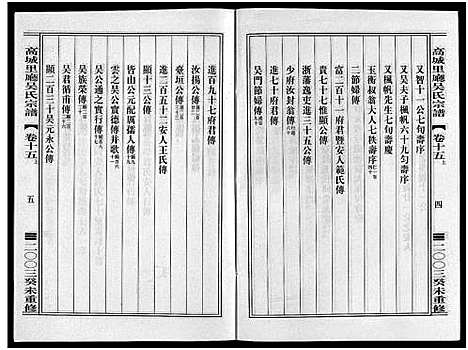 高城里廳吳氏宗譜
卷十五上
四
二〇〇三癸未重修
又智十一公七旬壽序
又吳夫子楓帆六十九勻壽序
又楓帆先生七旬壽慶
玉衡叔翁夫人七秩壽序
二節婦傳
富二百十一府君暨安人范氏傳
貴七十七惟顯公傳
浙藩逸吏進三十五公傳
少府汝封翁傳
吳門節婦傳
進百九十七府君傳
汝揚公傳
臺垣公傳
進二百五十二安人王氏傳
顯十三公傳
皆山公元配厲孺人傳
雲之吳公實德傳并歌
吳君作賓公實行傳
吳族榮傳
吳君循甫傳
顯二百三十吳元永公傳
高城里廳吳氏宗譜
卷十五上
五
二〇〇三癸未重修